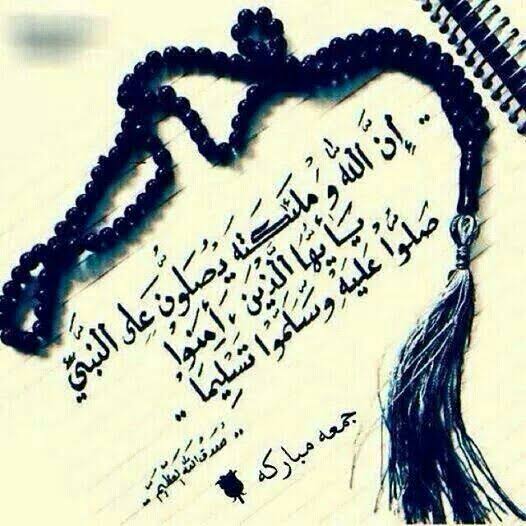 .. إِنَّ اللَّهَ وَمَلَئكَتَه يَصَلُّونَ عَلى النبيَّ
يَأَيُّهَا الَّذِينَ ءَامَنُوا
صَلُّوا عَلَيْهِ وَسَلِّمُوا تَسْلِيمًا ..
.. صدق الله العظيم ..
جمعه مباركه